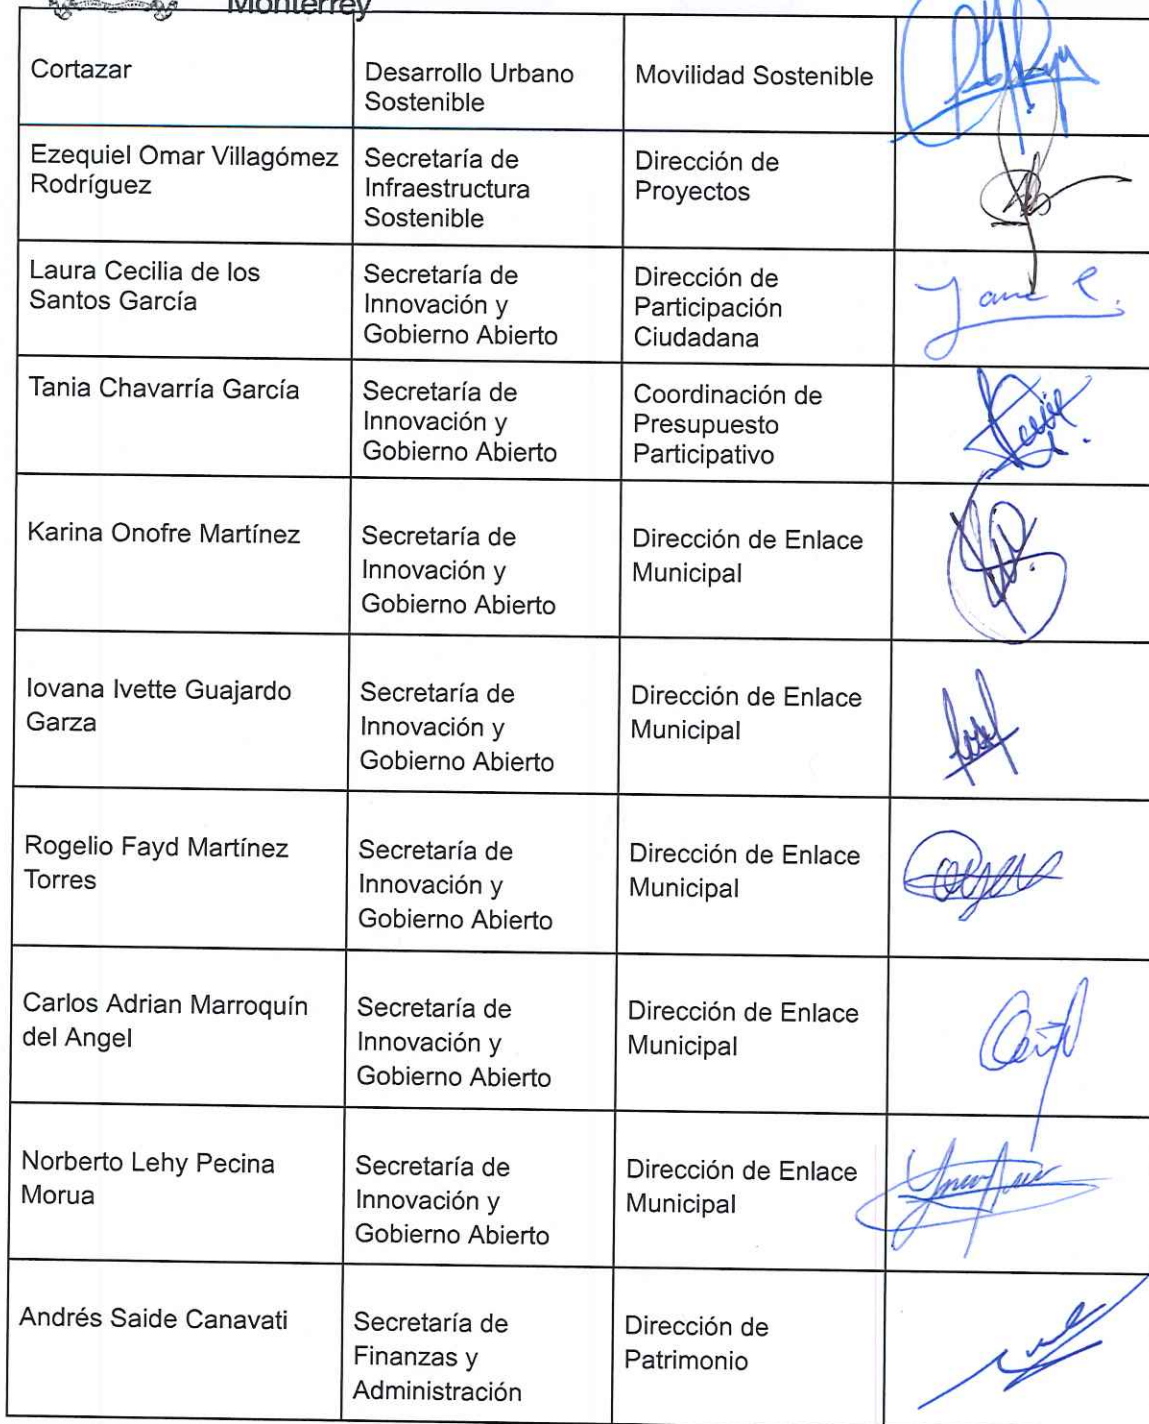 Monterrey
Cortazar
Desarrollo Urbano
Sostenible
Movilidad Sostenible
Ezequiel Omar Villagómez
Rodríguez
Secretaría de
Infraestructura
Sostenible
Dirección de
Proyectos
Laura Cecilia de los
Santos García
Secretaría de
Innovación y
Gobierno Abierto
Dirección de
Participación
Ciudadana
Tania Chavarría García
Secretaría de
Innovación y
Gobierno Abierto
Coordinación de
Presupuesto
Participativo
Karina Onofre Martínez
Secretaría de
Innovación y
Gobierno Abierto
Dirección de Enlace
Municipal
Iovana Ivette Guajardo
Garza
Secretaría de
Innovación y
Gobierno Abierto
Dirección de Enlace
Municipal
Rogelio Fayd Martínez
Torres
Secretaría de
Innovación y
Gobierno Abierto
Dirección de Enlace
Municipal
Carlos Adrian Marroquín
del Angel
Secretaría de
Innovación y
Gobierno Abierto
Dirección de Enlace
Municipal
Norberto Lehy Pecina
Morua
Secretaría de
Innovación y
Gobierno Abierto
Dirección de Enlace
Municipal
Andrés Saide Canavati
Secretaría de
Finanzas y
Administración
Dirección de
Patrimonio